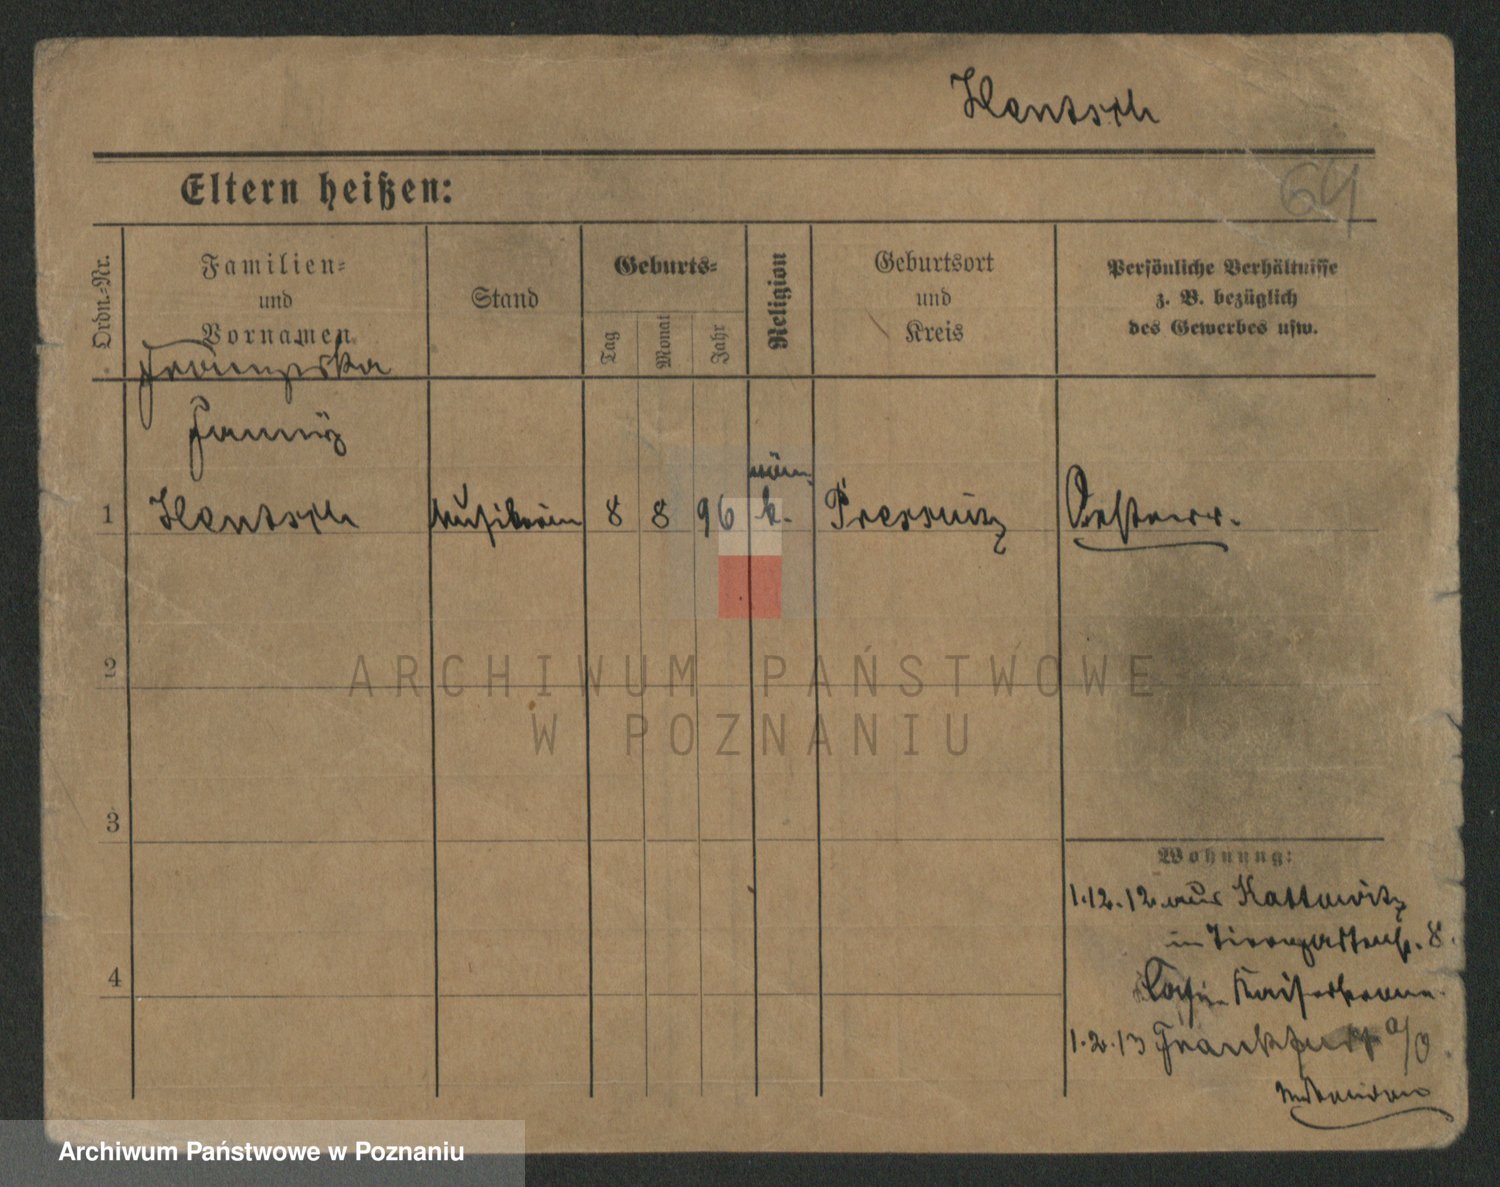 Hentsch
Eltern heißen:
64
Ordn.-Nr.
Familien-
und
Vornamen
Stand
Geburts-
Tag
Monat
Jahr
Religion
Geburtsort
und
Kreis
Persönliche Verhältnisse
z. B. bezüglich
des Gewerbes usw.
Franziska
Fanny
röm.
1 Hentsch Musikerin 8 8 96 k. Pressnitz Oesterr.
2
3
4
Wohnung:
1.12.12 aus Kattowitz
in Tiergartenstr. 8.
Kaiserkrone
1.2.13 Frankfurt a/O
ARCHIWUM PAŃSTWOWE
W POZNANIU
Archiwum Państwowe w Poznaniu